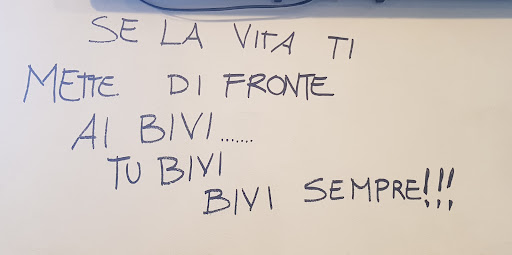 SE LA VITA TI
METTE DI FRONTE
AI BIVI.......
TU BIVI
BIVI SEMPRE!!!